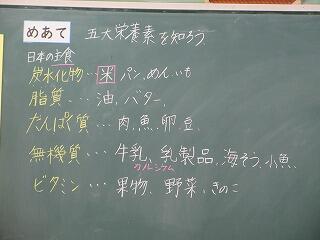 めあて 五大栄養素を知ろう。
日本の主食
炭水化物…米 パン、めん、いも
脂質…油、バター、
たんぱく質…肉、魚、卵、豆、
無機質…牛乳、乳製品、海そう、小魚、
カルシウム
ビタミン…果物、野菜、きのこ